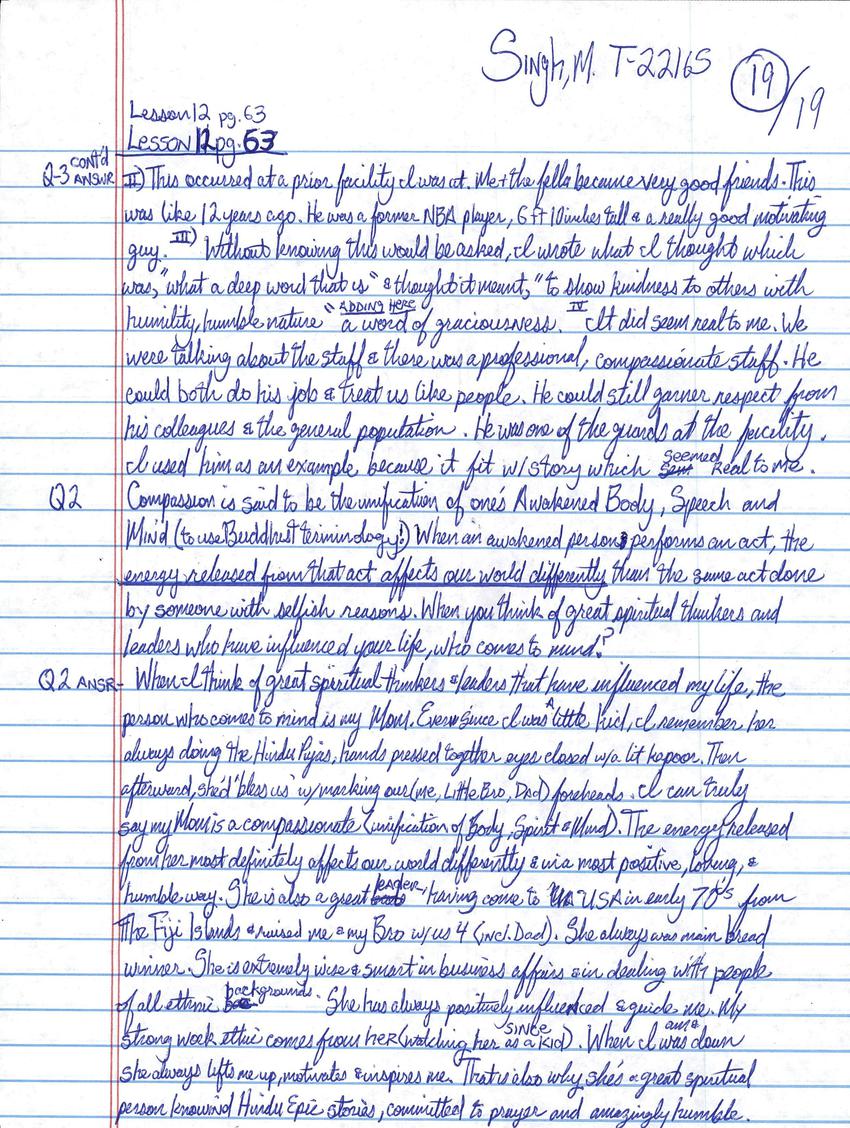 Singh, M. T-22165
19/19
Lesson 12 pg. 63
LESSON 12 pg. 63
Q-3 CONT'D ANSWR II) This occurred at a prior facility I was at. Me + the fella became very good friends. This
was like 12 years ago. He was a former NBA player, 6 ft 10 inches tall & a really good motivating
guy. III) Without knowing this would be asked, I wrote what I thought which
was, "what a deep word that is" & thought it meant, "to show kindness to others with
humility, humble nature" ADDING HERE a word of graciousness. IV It did seem real to me. We
were talking about the staff & there was a professional, compassionate staff. He
could both do his job & treat us like people. He could still garner respect from
his colleagues & the general population. He was one of the guards at the facility.
I used him as an example because it fit w/ story which seemed Real to me.
Q2 Compassion is said to be the unification of one's Awakened Body, Speech and
Mind (to use Buddhist terminology!) When an awakened person performs an act, the
energy released from that act affects our world differently than the same act done
by someone with selfish reasons. When you think of great spiritual thinkers and
leaders who have influenced your life, who comes to mind?
Q2 ANSR- When I think of great spiritual thinkers & leaders that have influenced my life, the
person who comes to mind is my Mom. Ever since I was A little kid, I remember her
always doing the Hindu Pujas, hands pressed together eyes closed w/a lit kapoor. Then
afterward, she'd 'bless us' w/ marking our (me, Little Bro, Dad) foreheads. I can truly
say my Mom is a compassionate (unification of Body, Spirit & Mind). The energy released
from her most definitely affects our world differently & in a most positive, loving, &
humble way. She is also a great leader, having come to USA in early 70's from
The Fiji Islands & raised me & my Bro w/ us 4 (incl. Dad). She always was main bread
winner. She is extremely wise & smart in business affairs & in dealing with people
of all ethnic backgrounds. She has always positively influenced & guide me. My
strong work ethic comes from her (watching her SINCE as a kid). When I was down
she always lifts me up, motivates & inspires me. That is also why she's a great spiritual
person knowind Hindu Epic stories, committed to prayer and amazingly humble.